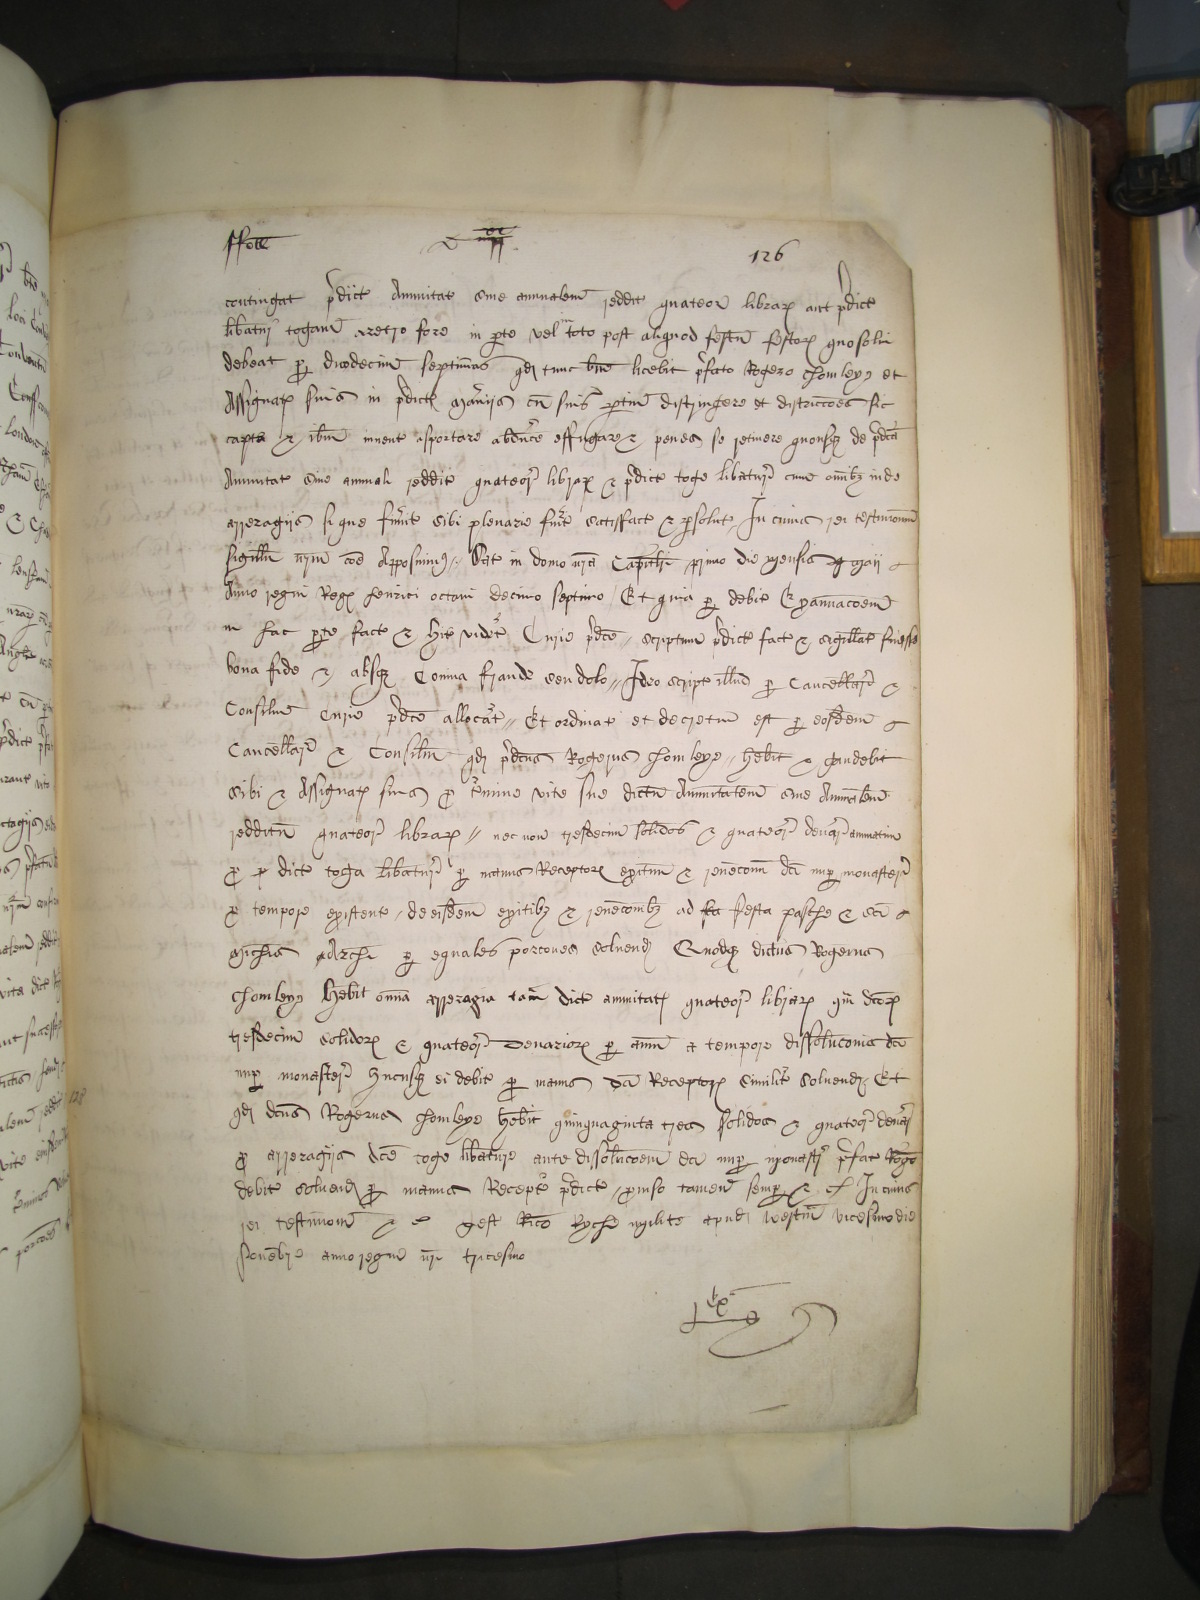 126
contingat p'dict Annuitat sive annualem reddit quatuor librar aut p'dict
libatur togam aretro fore in p'te vel in toto post aliquod festu festor quo solvi
debeat p duodecim septimas qd tunc bn licebit p'fato Rogero Chomley et
Assignat suis in p'dict Man'iis cu suis p'tin distringere et districcoes sic
capt & ibm invent asportare abducere effugare & penes se retinere quousq de p'dca
Annuitat sive annuali reddit quatuor librar & p'dict toge libatur cum omibz inde
arreragiis si que fu'int sibi plenarie fu'it satisfact & p'solut In cuius rei testimonium
sigillu nrum coe Apposuim Dat in domo nra Capitlri primo die mensis Maii
Anno regni Reg henrici octavi decimo septimo Et quia p debit Examinacoem
in hac p'te fact & hit videt' Curie p'dce scriptum p'dict fact & sigillat fuisse
bona fide & absq Comina fraude seu dolo Ideo script illud p Cancellar &
Consilium Curie p'dce allocat' Et ordinat et decretum est p eosdem
Cancellar & Consilium qd p'dcus Rogerus Chomleye hebit & gaudebit
sibi & Assignat suis p t'mino vite sue dictu Annuitatem sive Annualem
redditu quatuor librar nec non tresdecim solidos & quatuor denar annuatim
p p'dict toga libatur p manus Receptor exituu & revenconu dci nup monasterii
p tempore existent de eisdem exitibz & revenconibz ad festa pasche & sci
Michis Archi p equales porcones solvend Quodq dictus Rogerus
Chomley hebit omnia arreragia tam dict annuitat quatuor librar qm dcor
tresdecim solidor & quatuor denarior p annu a tempore dissolucionis dci
nup monasterii hucusq ei debit p manus dci Receptor similit' solvend Et
qd dcus Rogerus Chomleye hebit quinquaginta tres solidos & quatuor denar
p arreragiis dce toge libature ante dissolucoem dci nup monastr p'fat Rogo
debit solvend p manus Recept' p'dict proviso tamen semp & cl In cuius
rei testimonm & c Test Rico Ryche milite apud Westm vicesimo die
Novebr anno regni nri tricesimo
Ex